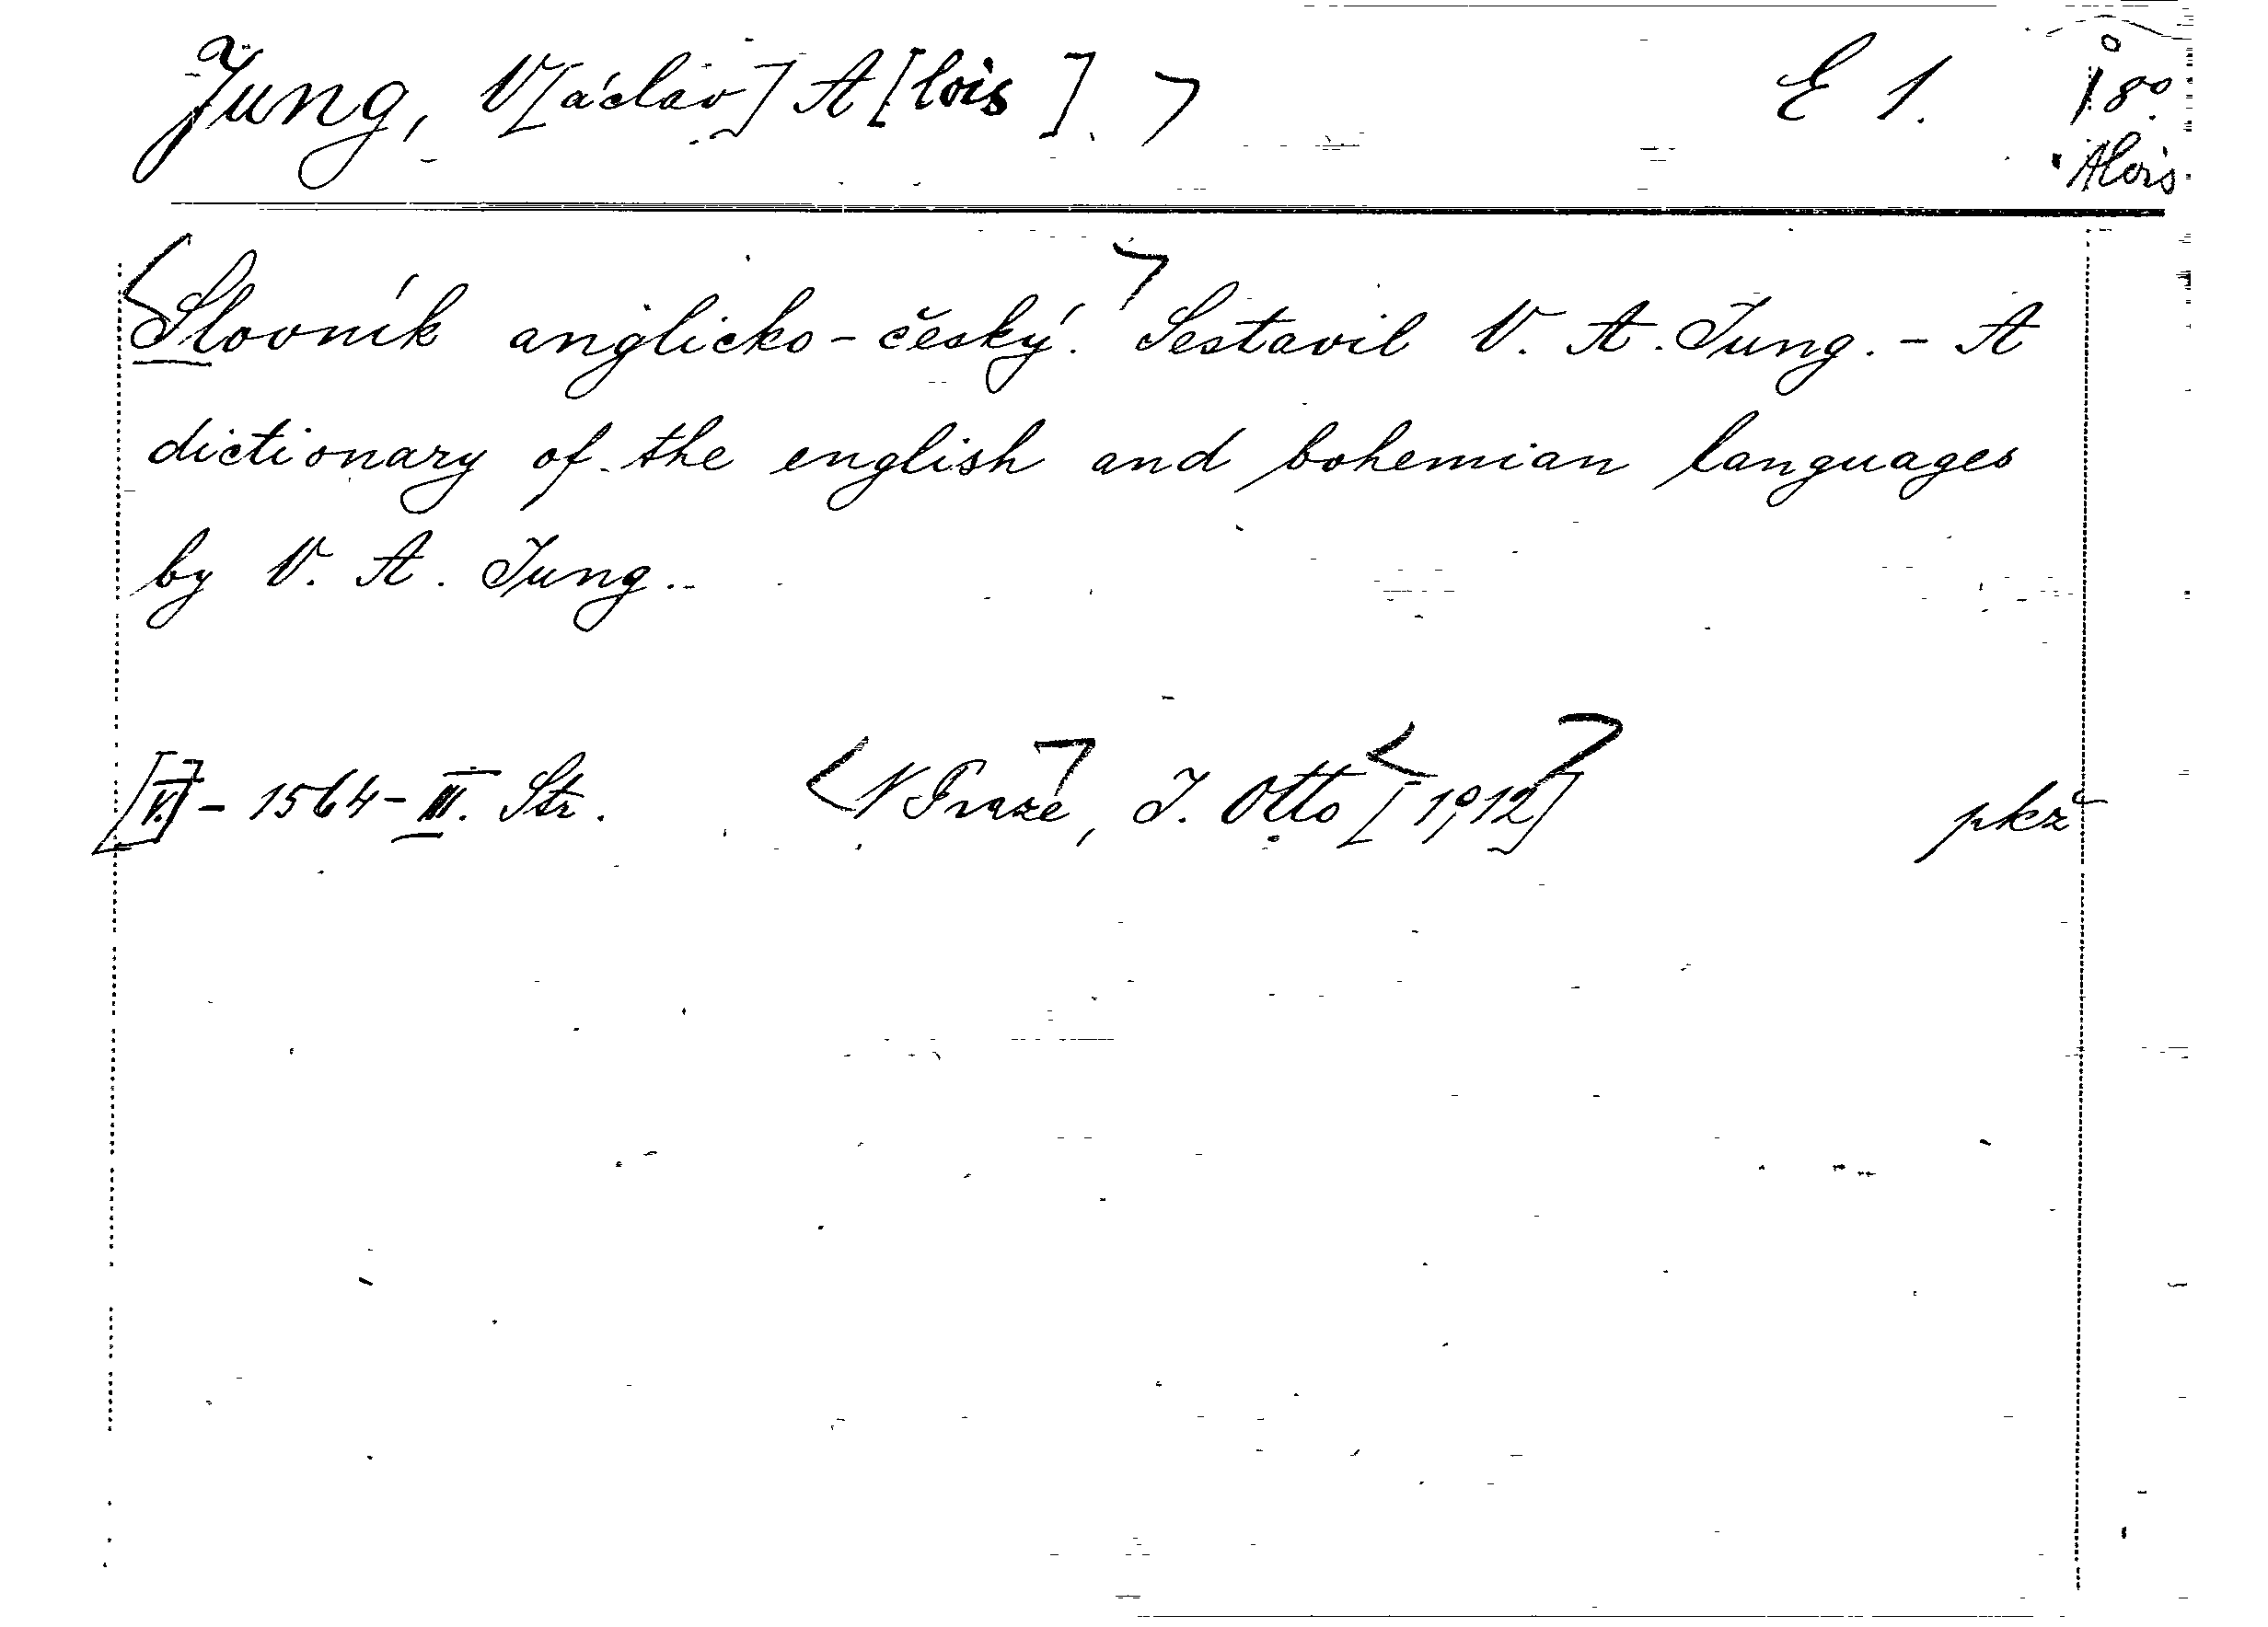 Jung, V[áclav] A[lois] E 1. 8°
Alois
Slovník anglicko-český. Sestavil V. A. Jung. - A
dictionary of the english and bohemian languages
by V. A. Jung.
[V.] - 1564 - III. Str. V Praze, J. Otto [1912] pkž